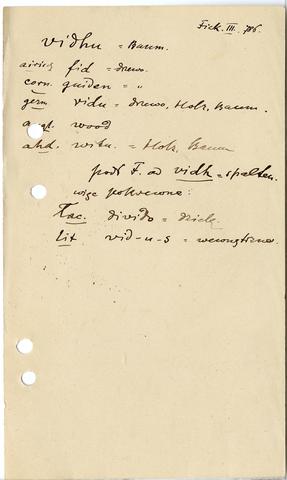 Fick. III. 786.
vidhu = Baum.
airisch fid = drewo.
corn. guiden = "
germ vidu = drewo, Holz, Baum.
angl. wood
ahd. witu. = Holz, Baum
podł F. od vidh = spalten.
więc pokrewne:
Łac. divido = dzielę
Lit vid-u-s =